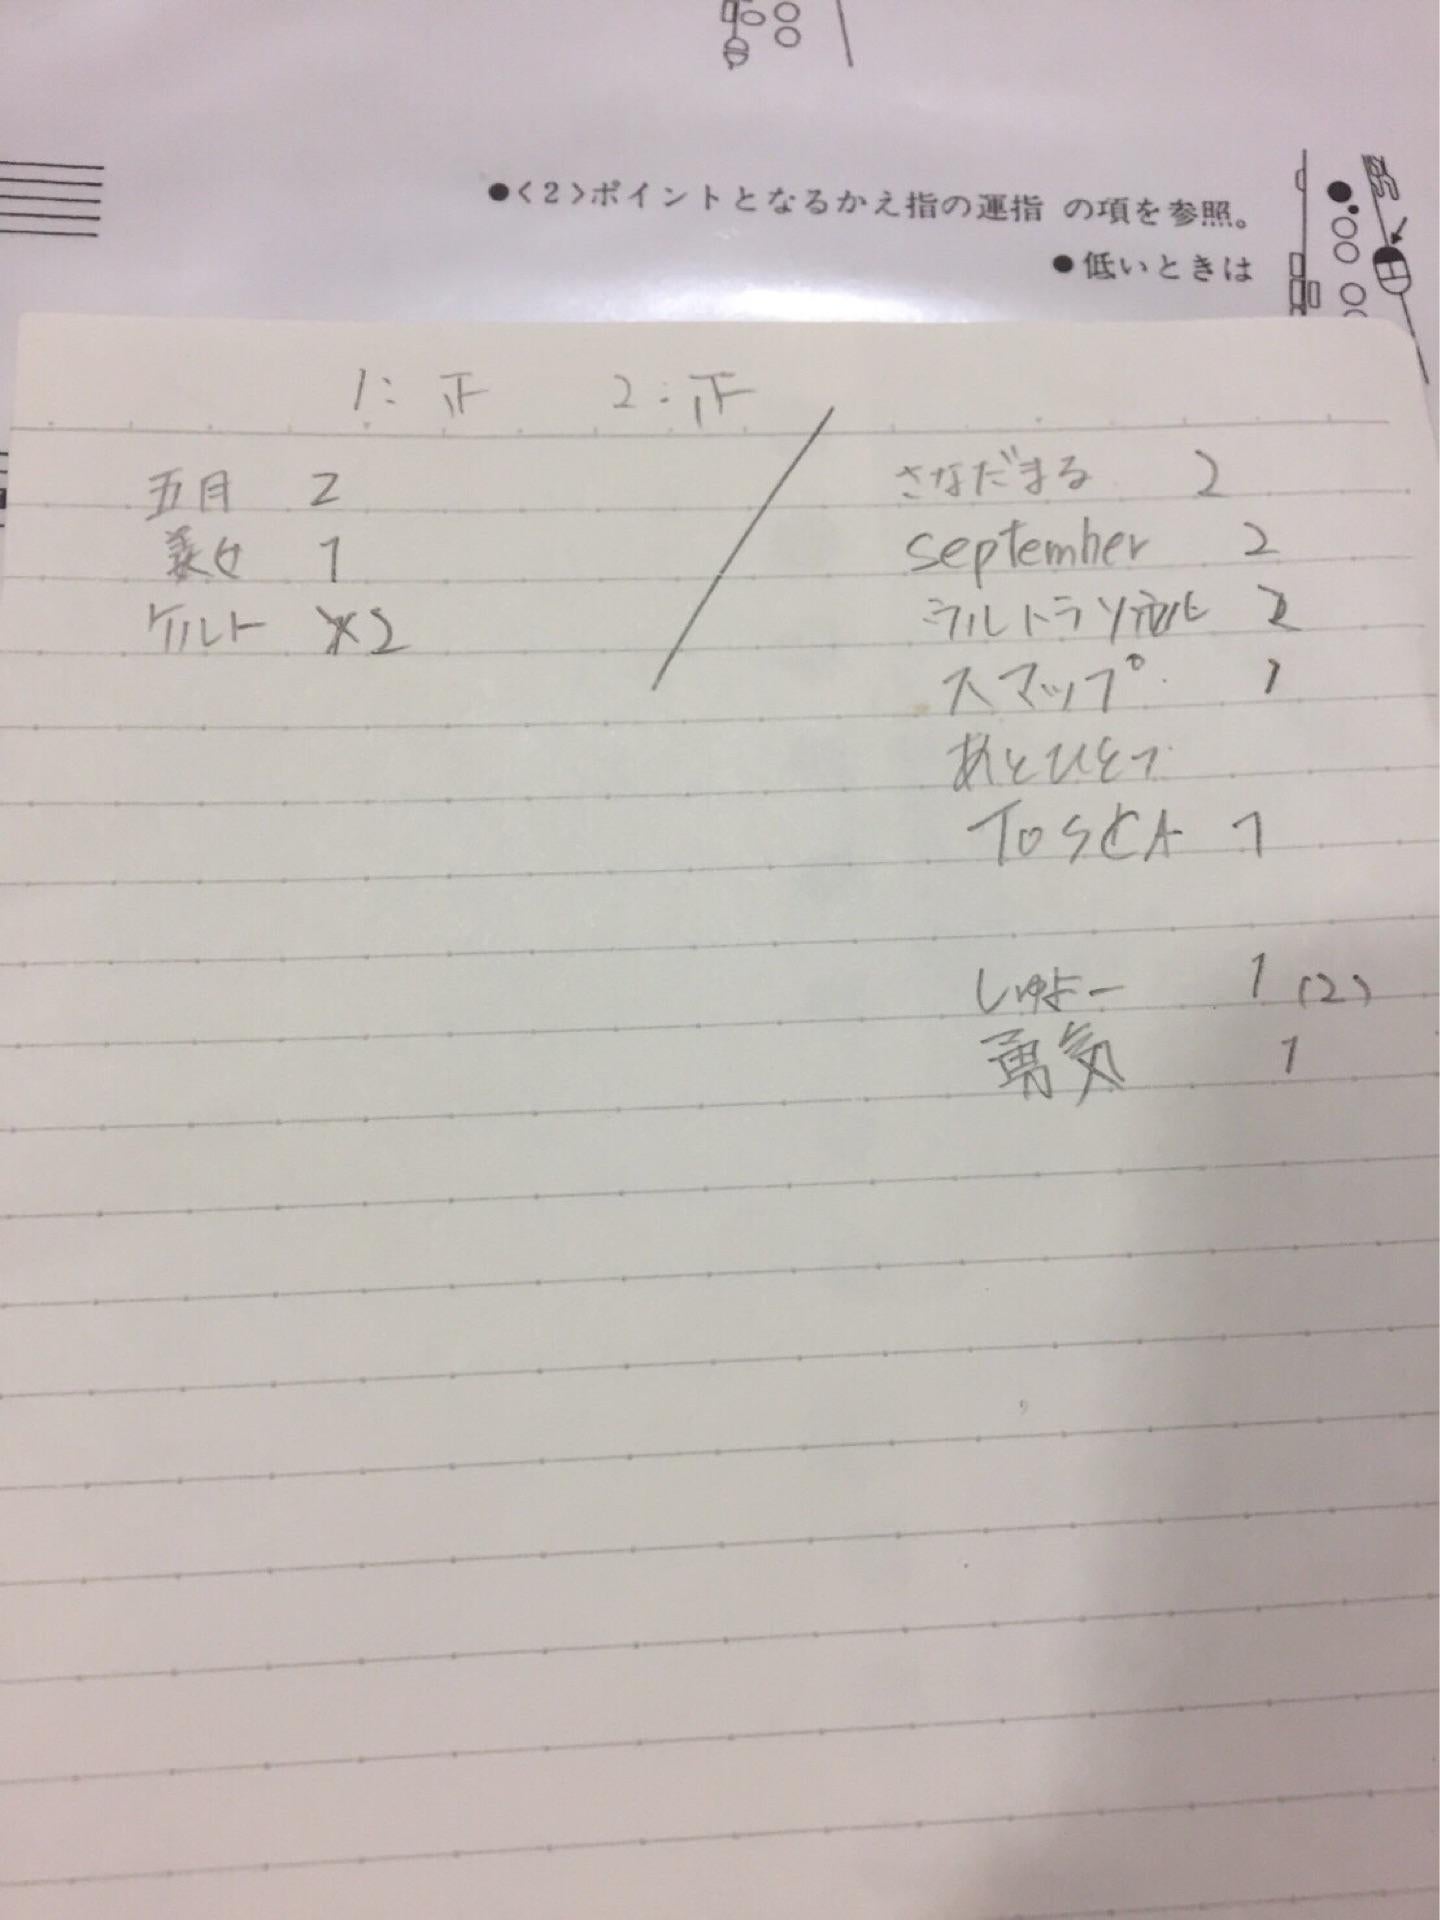 ●<2>ポイントとなるかえ指の運指 の項を参照。
●低いときは
1: 正 2: 正
五月 2
義女 1
ケルト 2
さなだまる 2
september 2
ウルトラソウル 2
スマップ 1
あとひとつ
TOSCA 1
しゅよー 1 (2)
勇気 1